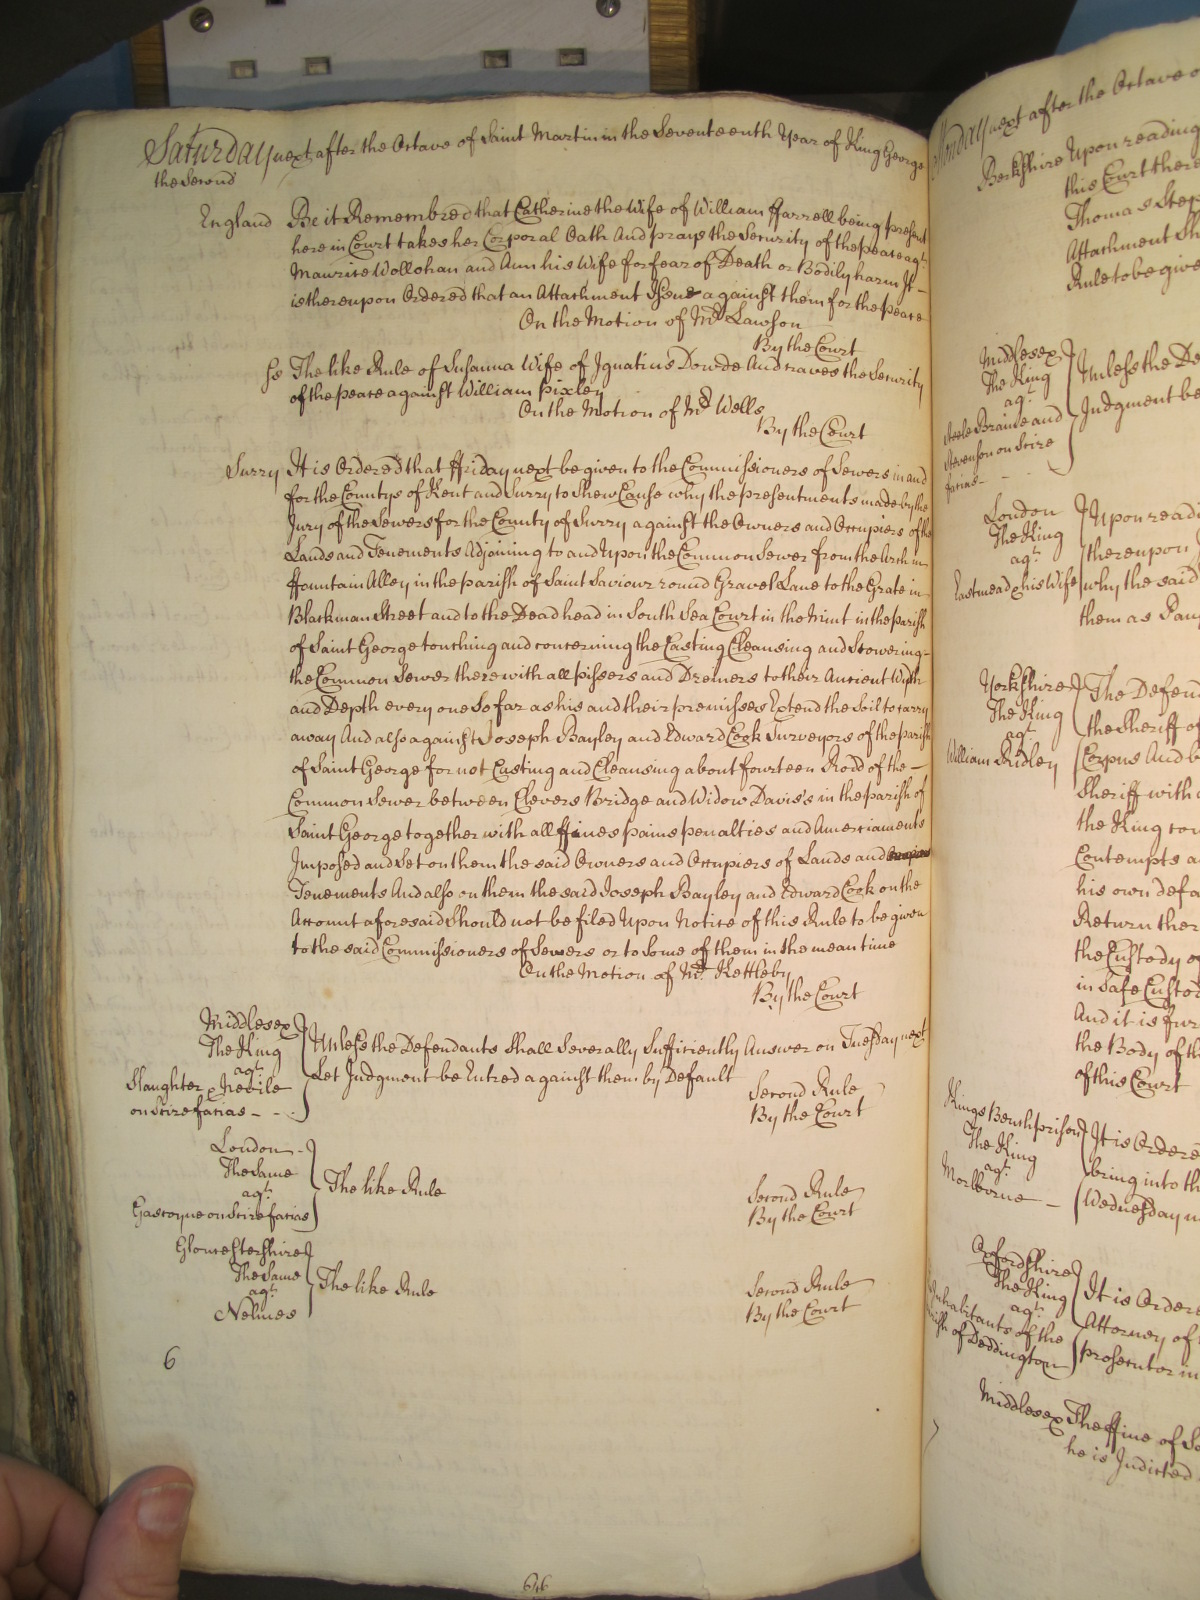 Saturday next after the Octave of Saint Martin in the Seventeenth Year of King George
the Second
England Be it Remembred that Catherine the Wife of William ffarrell being present
here in Court takes her Corporal Oath And prays the Security of the peace agt.
Maurice Wollohan and Ann his Wife for fear of Death or Bodily harm It
is thereupon Ordered that an Attachment Issue against them for the peace
On the Motion of Mr. Lawson
By the Court
ss The like Rule of Susanna Wife of Ignatius Dowde And craves the Security
of the peace against William pixley
On the Motion of Mr. Wells
By the Court
Surry It is Ordered that ffriday next be given to the Commissioners of Sewers in and
for the Countys of Kent and Surry to Shew Cause why the presentments made by the
Jury of the Sewers for the County of Surry against the Owners and Occupiers of the
Lands and Tenements Adjoining to and upon the Common Sewer from the Arch in
ffountain Alley in the parish of Saint Saviour round Gravel Lane to the Grate in
Blackman Street and to the Dead head in South Sea Court in the Mint in the parish
of Saint George touching and concerning the Casting Cleansing and Scowering
the Common Sewer there with all pissers and Dreiners to their Ancient Width
and Depth every one So far as his and their premisses Extend the Soil to carry
away And also against Joseph Bayley and Edward Cook Surveyors of the parish
of Saint George for not Casting and Cleansing about fourteen Rodd of the
Common Sewer between Clevers Bridge and Widow Davis's in the parish of
Saint George together with all ffines pains penalties and Amerciaments
Imposed and Set on them the said Owners and Occupiers of Lands and
Tenements And also on them the said Joseph Bayley and Edward Cook on the
Account aforesaid Should not be filed Upon Notice of this Rule to be given
to the said Commissioners of Sewers or to Some of them in the mean time
On the Motion of Mr. Kettleby
By the Court
Middlesex
The King
agt.
Slaughter & Nevile
on Scire facias
Unless the Defendants Shall Severally Sufficiently Answer on Tuesday next
Let Judgment be Entred against them by Default
Second Rule
By the Court
London
The Same
agt.
Gascoyne on Scire facias
The like Rule
Second Rule
By the Court
Gloucestershire
The Same
agt.
Nelmes
The like Rule
Second Rule
By the Court
6
646
Monday next after the Octave
Berkshire Upon reading
this Court there
Thomas Step
Attachment Sh
Rule to be give
Middlesex
The King
agt.
Steele Braine and
Stevenson on Scire
facias
Unless the De
Judgment be
London
The King
agt.
Eastmead & his Wife
Upon readi
thereupon
why the said
them as Pau
Yorkshire
The King
agt.
William Ridley
The Defend
the Sheriff of
Corpus And b
Sheriff with
the King con
Contempts a
his own defa
Return ther
the Custody o
in Safe Custod
And it is fur
the Body of th
of this Court
Kings Bench prison
The King
agt.
Morborne
It is Ordere
bring into th
Wednesday n
Oxfordshire
The King
agt.
Inhabitants of the
parish of Deddington
It is Ordere
Attorney of
prosecutor in
Middlesex The ffine of S
he is Indicted
7